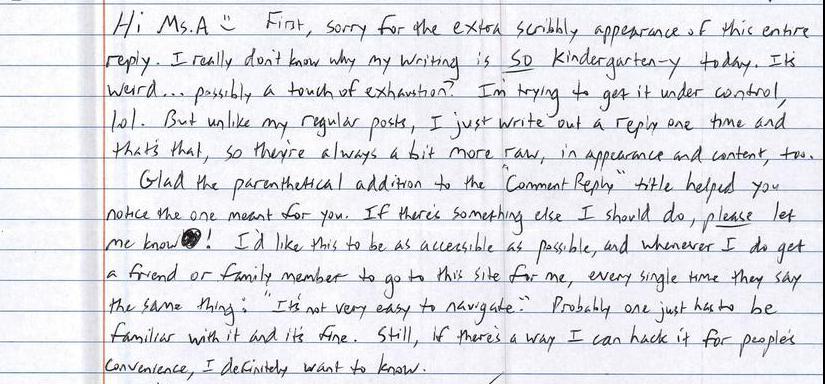 Hi Ms.A :) First, sorry for the extra scribbly appearance of this entire
reply. I really don't know why my writing is SO Kindergarten-y today. It's
weird... possibly a touch of exhaustion? I'm trying to get it under control,
lol. But unlike my regular posts, I just write out a reply one time and
that's that, so they're always a bit more raw, in appearance and content, too.
Glad the parenthetical addition to the "Comment Reply" title helped you
notice the one meant for you. If there's something else I should do, please let
me know! I'd like this to be as accessible as possible, and whenever I do get
a friend or family member to go to this site for me, every single time they say
the same thing: "It's not very easy to navigate." Probably one just has to be
familiar with it and it's fine. Still, if there's a way I can hack it for people's
convenience, I definitely want to know.